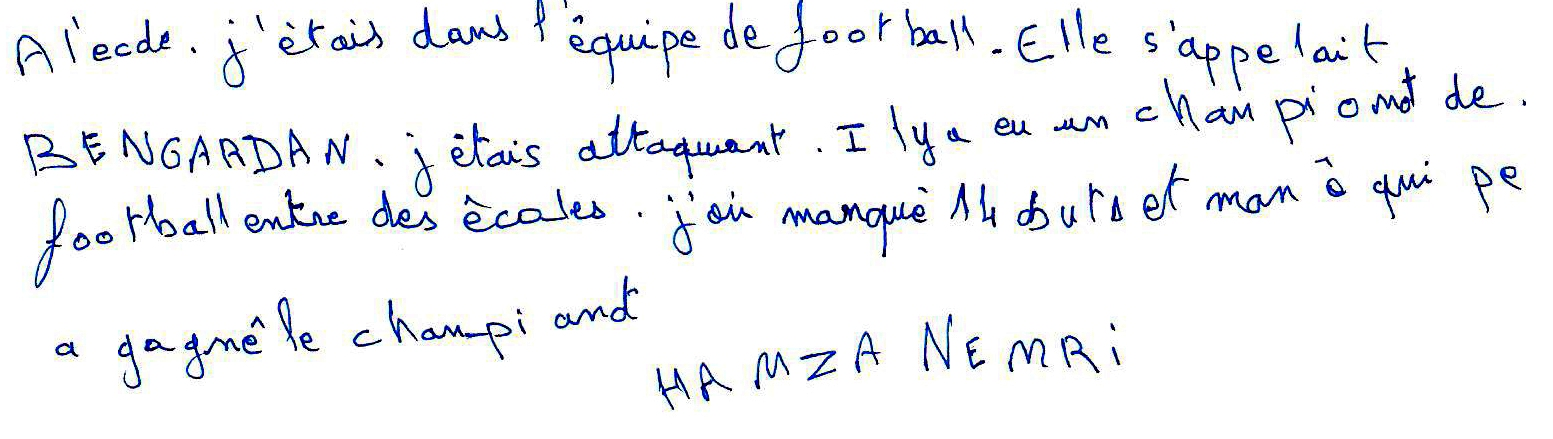 A l'ecole. j'ètais dans l'èquipe de football. Elle s'appelait
BENGARDAN. j ètais attaquant. I lya eu un championat de.
football entre des ècoles. j'ai manquè 14 buts et man ê qui pe
a gagnê le champi anat
HAMZA NEMRi